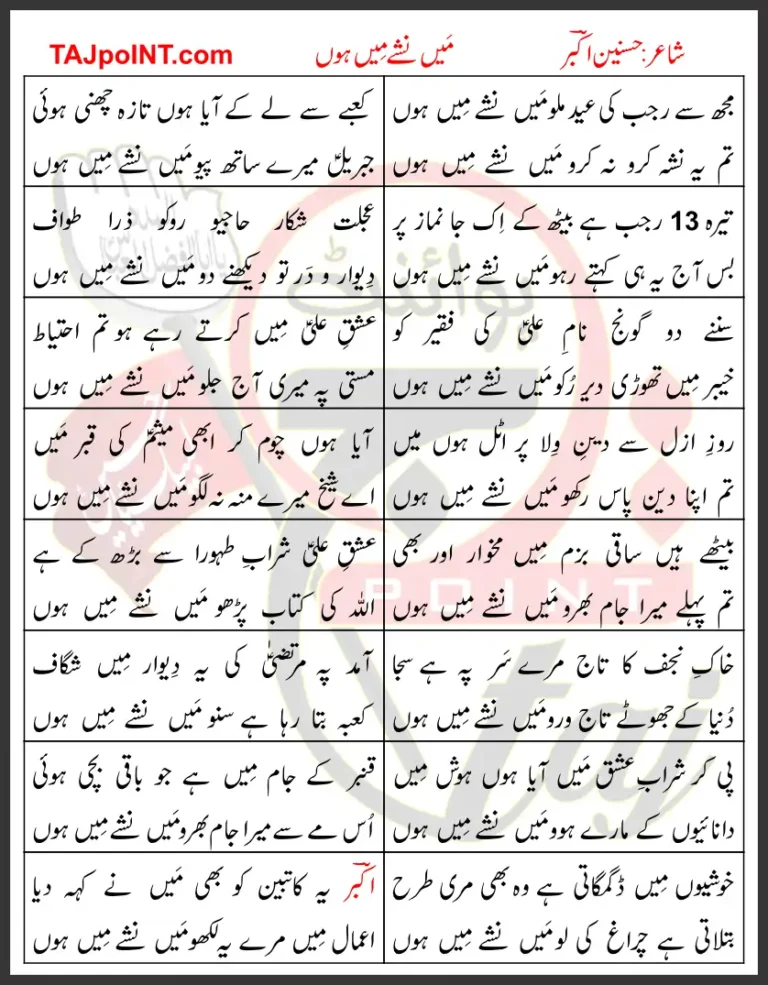 شاعر: حسنین اکبرؔ مَیں نشے مِیں ہوں TAJpoINT.com
مجھ سے رجب کی عید ملو مَیں نشے مِیں ہوں
تم یہ نشہ کرو نہ کرو مَیں نشے مِیں ہوں
کعبے سے لے کے آیا ہوں تازہ چھنی ہوئی
جبریلؑ میرے ساتھ پیو مَیں نشے مِیں ہوں
تیرہ 13 رجب ہے بیٹھ کے اِک جا نماز پر
بس آج یہ ہی کہتے رہو مَیں نشے مِیں ہوں
عجلت شکار حاجیو روکو ذرا طواف
دِیوار و دَر تو دیکھنے دو مَیں نشے مِیں ہوں
سننے دو گونج نامِ علیؑ کی فقیر کو
خیبر مِیں تھوڑی دیر رُکو مَیں نشے مِیں ہوں
عشقِ علیؑ مِیں کرتے رہے ہو تم احتیاط
مستی پہ میری آج جلو مَیں نشے مِیں ہوں
روزِ ازل سے دینِ وِلا پر اٹل ہوں میں
تم اپنا دین پاس رکھو مَیں نشے مِیں ہوں
آیا ہوں چوم کر ابھی میثمؑ کی قبر مَیں
اے شیخ میرے منہ نہ لگو مَیں نشے مِیں ہوں
بیٹھے ہیں ساقی بزم مِیں مخوار اور بھی
تم پہلے میرا جام بھرو مَیں نشے مِیں ہوں
عشقِ علیؑ شرابِ طہورا سے بڑھ کے ہے
اللہ کی کتاب پڑھو مَیں نشے مِیں ہوں
خاکِ نجف کا تاج مرے سَر پہ ہے سجا
دُنیا کے جھوٹے تاج ورو مَیں نشے مِیں ہوں
آمد پہ مرتضیٰؑ کی یہ دِیوار مِیں شگاف
کعبہ بتا رہا ہے سنو مَیں نشے مِیں ہوں
پی کر شرابِ عشق مَیں آیا ہوں ہوش مِیں
دانائیوں کے مارے ہوو مَیں نشے مِیں ہوں
قنبر کے جام مِیں ہے جو باقی بچی ہوئی
اُس مے سے میرا جام بھرو مَیں نشے مِیں ہوں
خوشیوں مِیں ڈگمگاتی ہے وہ بھی مری طرح
بتلاتی ہے چراغ کی لو مَیں نشے مِیں ہوں
اکبرؔ یہ کاتبین کو بھی مَیں نے کہہ دیا
اعمال مِیں مرے یہ لکھو مَیں نشے مِیں ہوں
پوائنٹ
POINT
taj